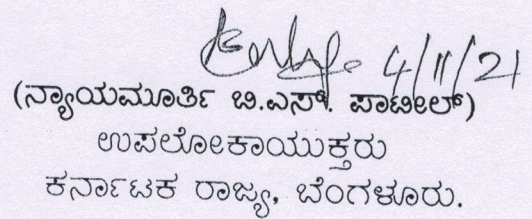 4/11/21
(ನ್ಯಾಯಮೂರ್ತಿ ಬಿ.ಎಸ್. ಪಾಟೀಲ್)
ಉಪಲೋಕಾಯುಕ್ತರು
ಕರ್ನಾಟಕ ರಾಜ್ಯ, ಬೆಂಗಳೂರು.